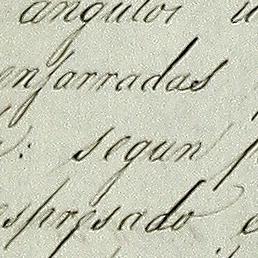 angulos
enfarradas
: segun
espresado